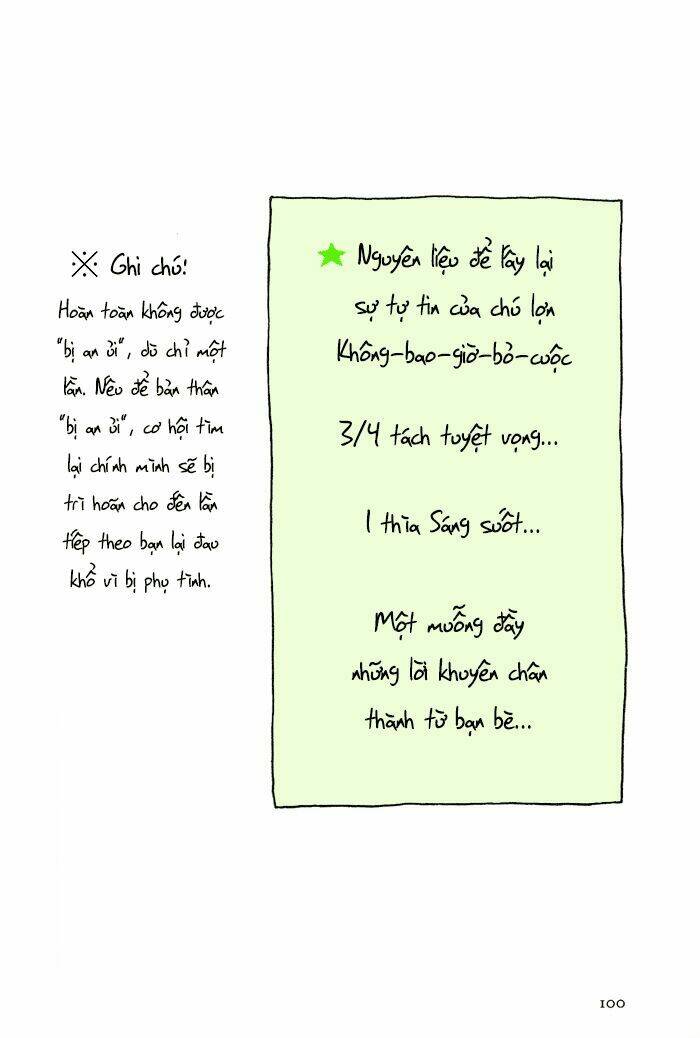 ※ Ghi chú!
Hoàn toàn không được
"bị an ủi", dù chỉ một
lần. Nếu để bản thân
"bị an ủi", cơ hội tìm
lại chính mình sẽ bị
trì hoãn cho đến lần
tiếp theo bạn lại đau
khổ vì bị phụ tình.
★ Nguyên liệu để lấy lại
sự tự tin của chú lợn
Không-bao-giờ-bỏ-cuộc
3/4 tách tuyệt vọng...
1 thìa Sáng suốt...
Một muỗng đầy
những lời khuyên chân
thành từ bạn bè...
100